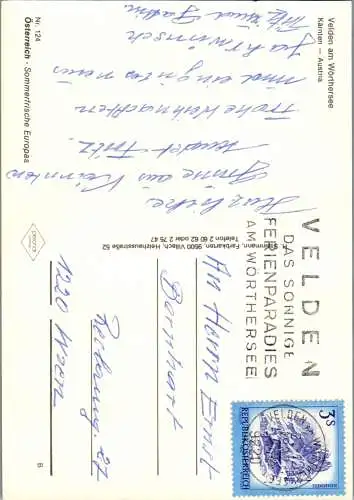 Velden am Wörthersee
Kärnten — Austria
Herzliche
Grüße aus Kärnten
sendet Fritz.
Frohe Weihnachten
und ein gutes neues
Jahr wünscht
Fritz und
Nr. 124
Österreich - Sommerfrische Europas
Farbkarten, 9500 Villach, Heizhausstraße 52
Telefon 2 60 62 oder 2 75 47
VELDEN
DAS SONNIGE
FERIENPARADIES
AM WÖRTHERSEE
VELDEN
9220
3S
REPUBLIK ÖSTERREICH
An Herrn Ernst
Bernhart
1220 Wien
B